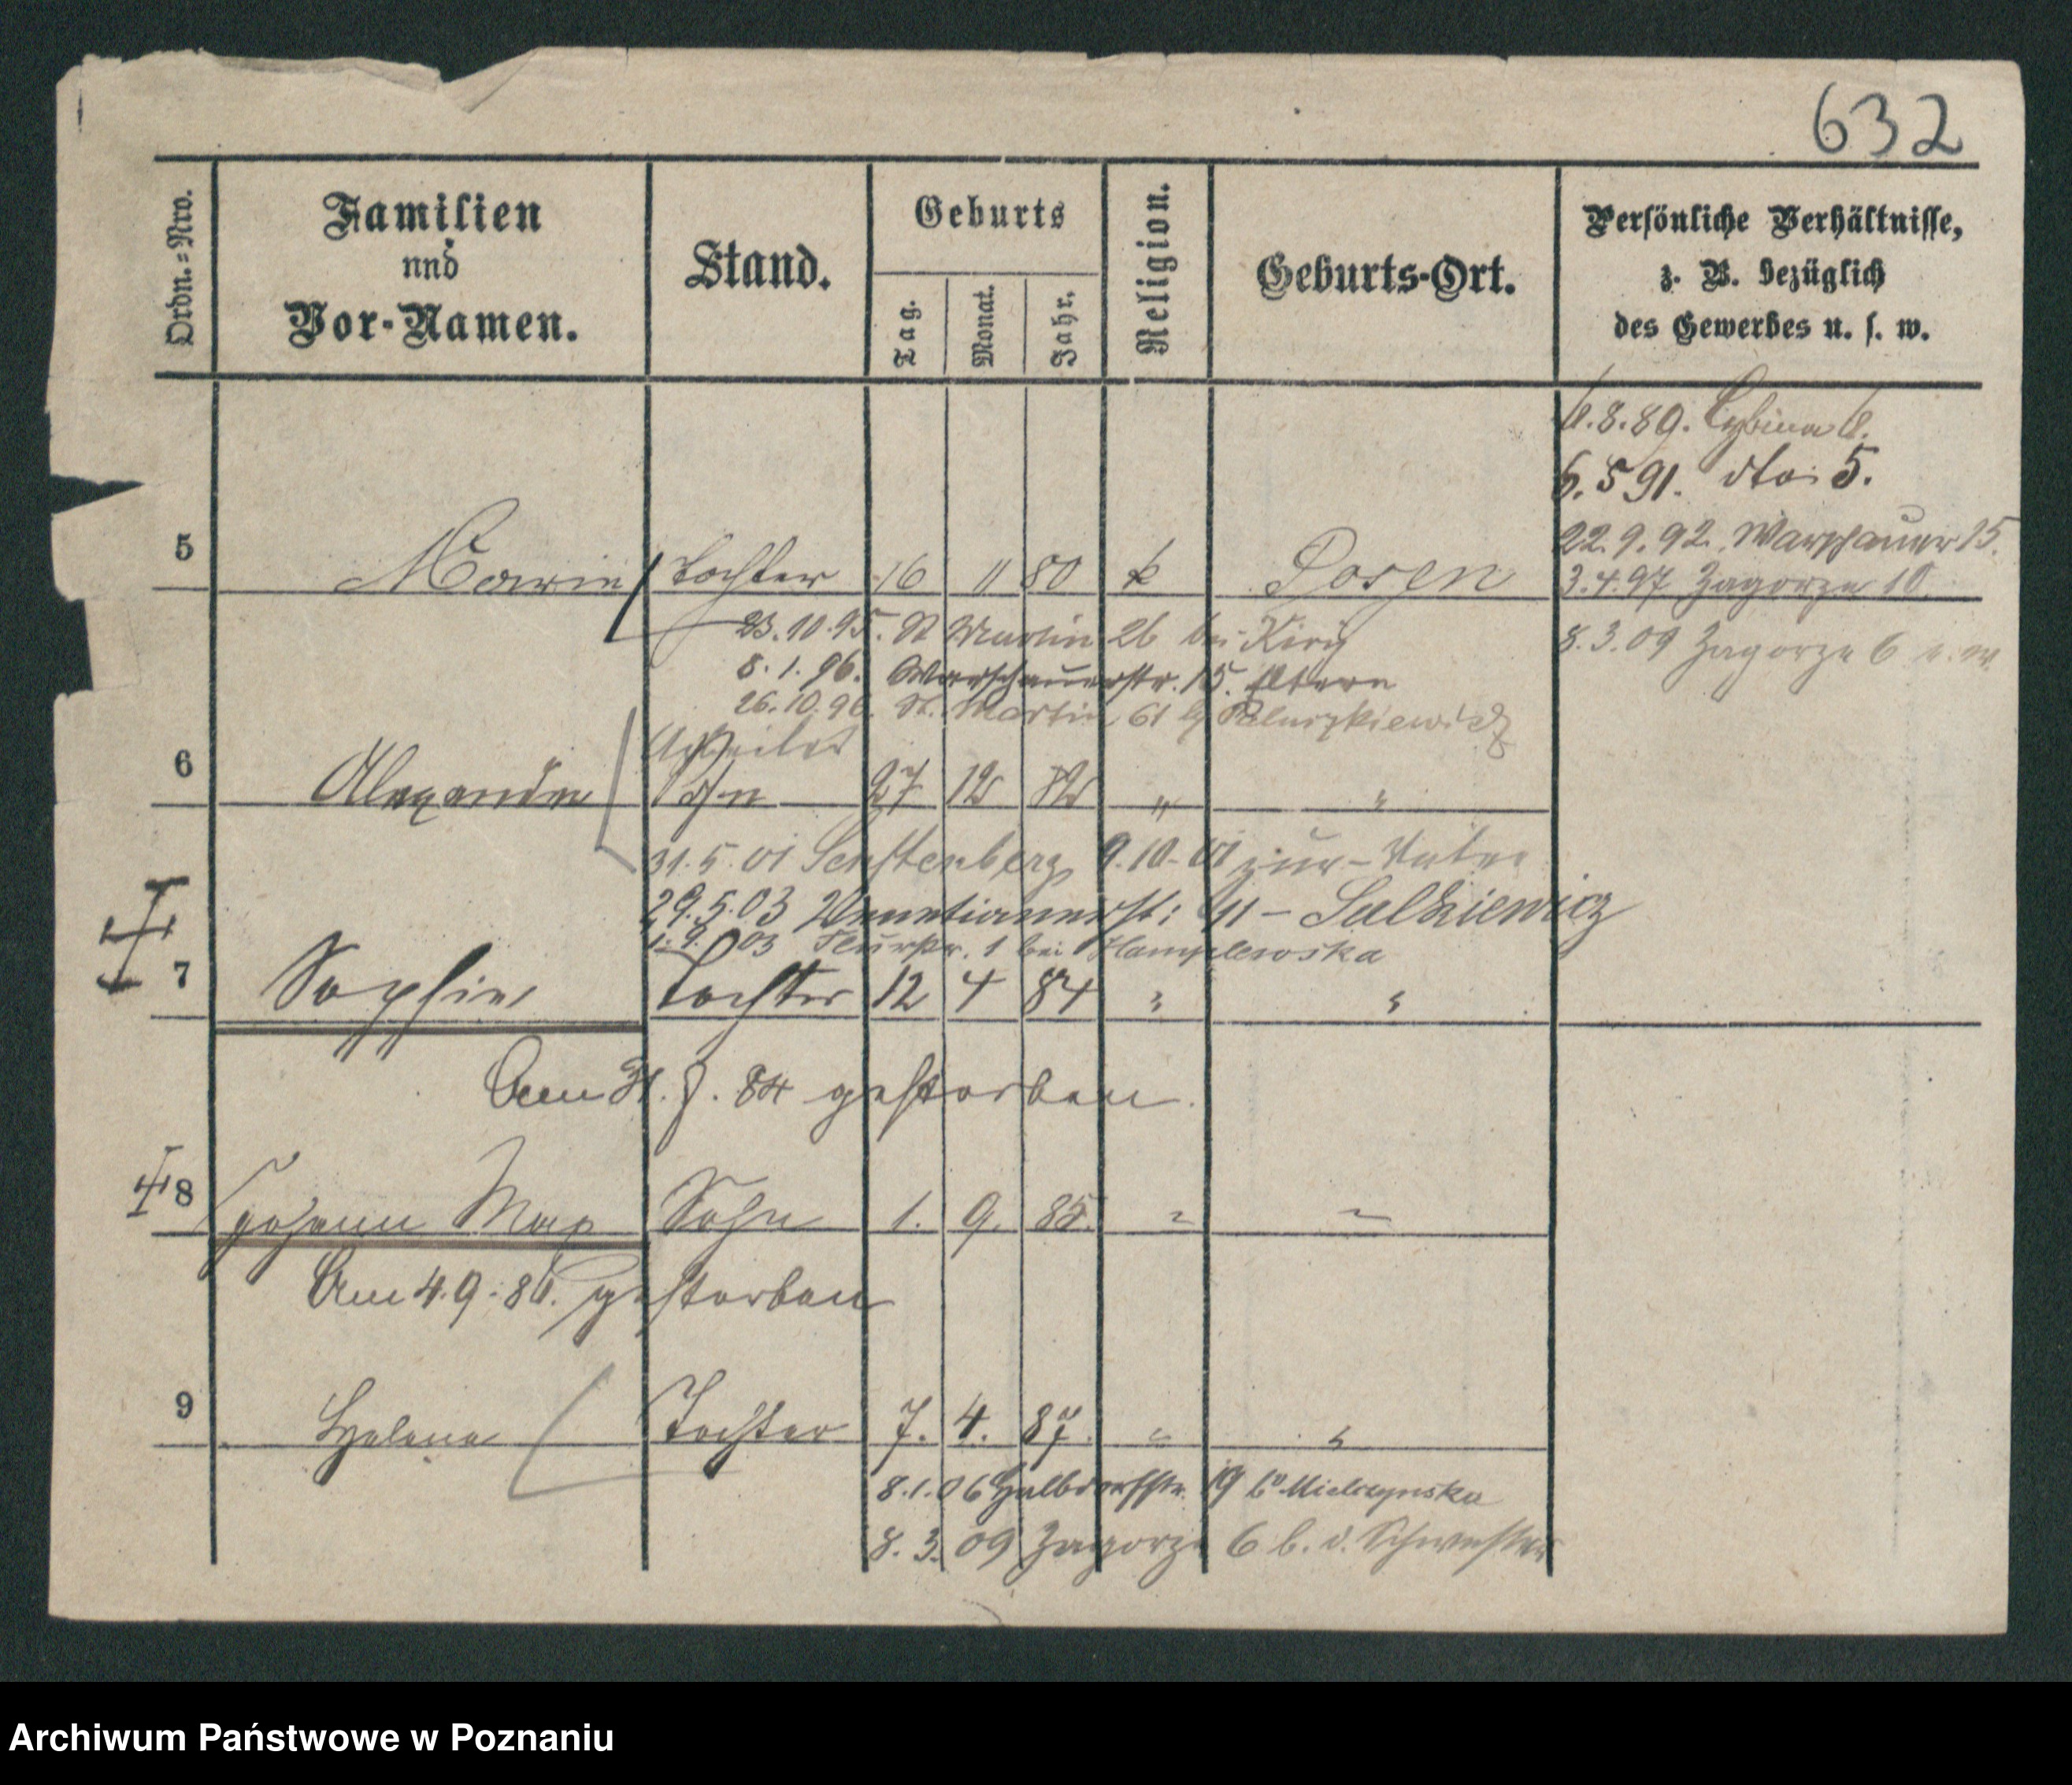 632
Ordn.=Nro.
Familien
und
Vor-Namen.
Stand.
Geburts
Tag.
Monat.
Jahr.
Religion.
Geburts-Ort.
Persönliche Verhältnisse,
z. B. bezüglich
des Gewerbes u. s. w.
.8.89. Cybina
6.5 91. dto. 5.
22.9.92. Warschauer 15.
5 Marie Tochter 16 11 80 k Posen 3.4.97 Zagorze 10
23.10.95. St Martin 26 bei
8.3.09 Zagorze 6
8.1.96. Warschauerstr. 15. Eltern
26.10.96. St. Martin 61
Arbeiter
6 Alexander Sohn 27 12 82 " "
31.5.01 Senftenberg, 9.10.01
29.5.03 Venetianerst: Sulkiewicz
1.9.03 1 bei Hamplewska
7 Sophie Tochter 12 4 84 " "
Am 31. 7. 84 gestorben.
8 Johann Max Sohn 1. 9. 85. " "
Am 4.9.86. gestorben
9 Helene Tochter 7. 4. 87. " "
8.1.06 Halbdorfstr. 19 b. Mielczynska
8.3.09 Zagorze 6 b. d. Schwester
Archiwum Państwowe w Poznaniu